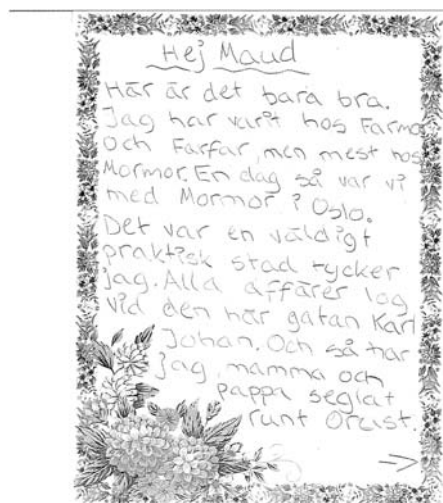 Hej Maud
Här är det bara bra.
Jag har varit hos Farmor
och Farfar, men mest hos
Mormor. En dag så var vi
med Mormor i Oslo.
Det var en väldigt
praktisk stad tycker
jag. Alla affärer låg
vid den här gatan Karl
Johan. Och så har
jag, mamma och
pappa seglat
runt Orust.
→